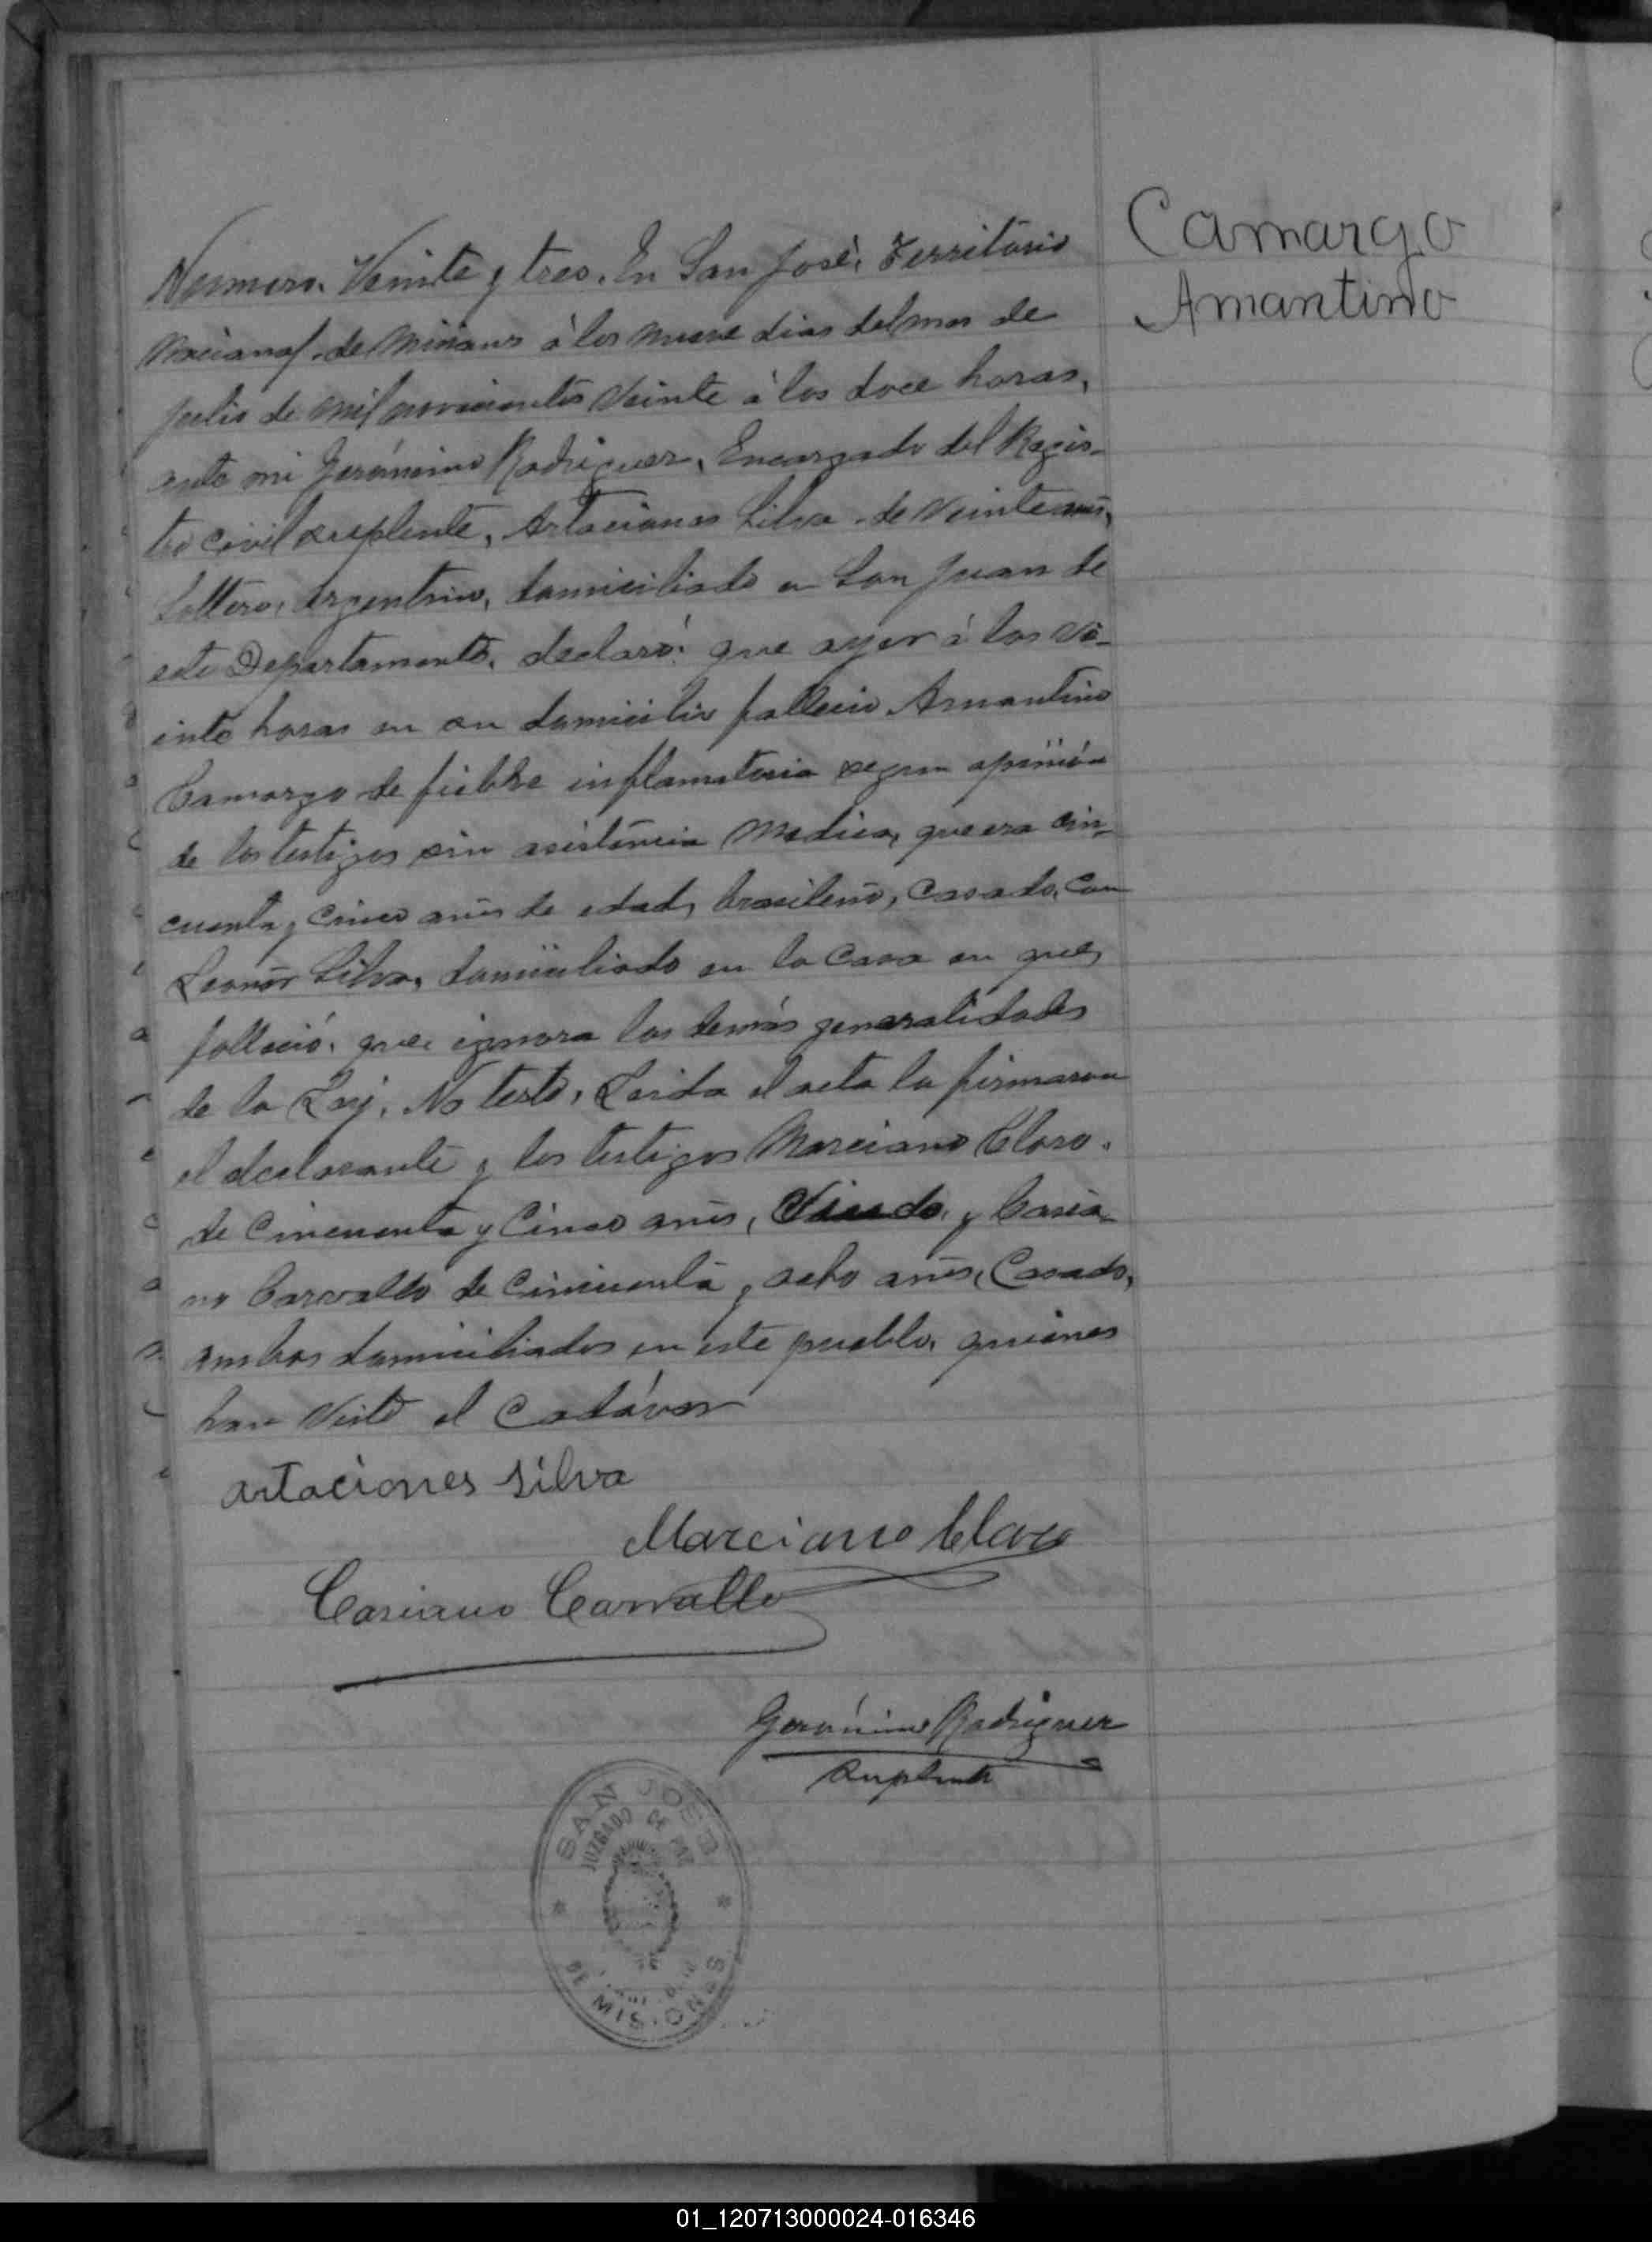 Camargo
Amantino
Numero. Veinte y tres. En San José, Territorio
Nacional de Misiones á los nueve dias del mes de
julio de mil novecientos veinte á las doce horas,
ante mi Gerónimo Rodriguez, Encargado del Regis-
tro civil suplente, Artaciones Silva de veinte años,
Soltero, Argentino, domiciliado en San Juan de
este Departamento, declaró: que ayer á las ve-
inte horas en su domicilio fallecio Amantino
Camargo de fiebre inflamatoria segun opinión
de los testigos sin asistencia Medica, que era cin-
cuenta y cinco años de edad, brasileño, Casado, con
Leonor Silva, domiciliado en la casa en que
falleció, que ignora las demás generalidades
de la Ley. No testó, Leida el acta la firmaron
el declarante y los testigos Marciano Claro.
de Cincuenta y Cinco años, Viudo, y Casia-
no Carvallo de Cincuenta y ocho años, Casado,
ambos domiciliados en este pueblo, quienes
han visto el Cadáver
artaciones silva
Marciano Claro
Casiano Carvallo
Gerónimo Rodriguez
Suplente
SAN JOSE
JUZGADO DE PAZ
DE MISIONES
01_120713000024-016346